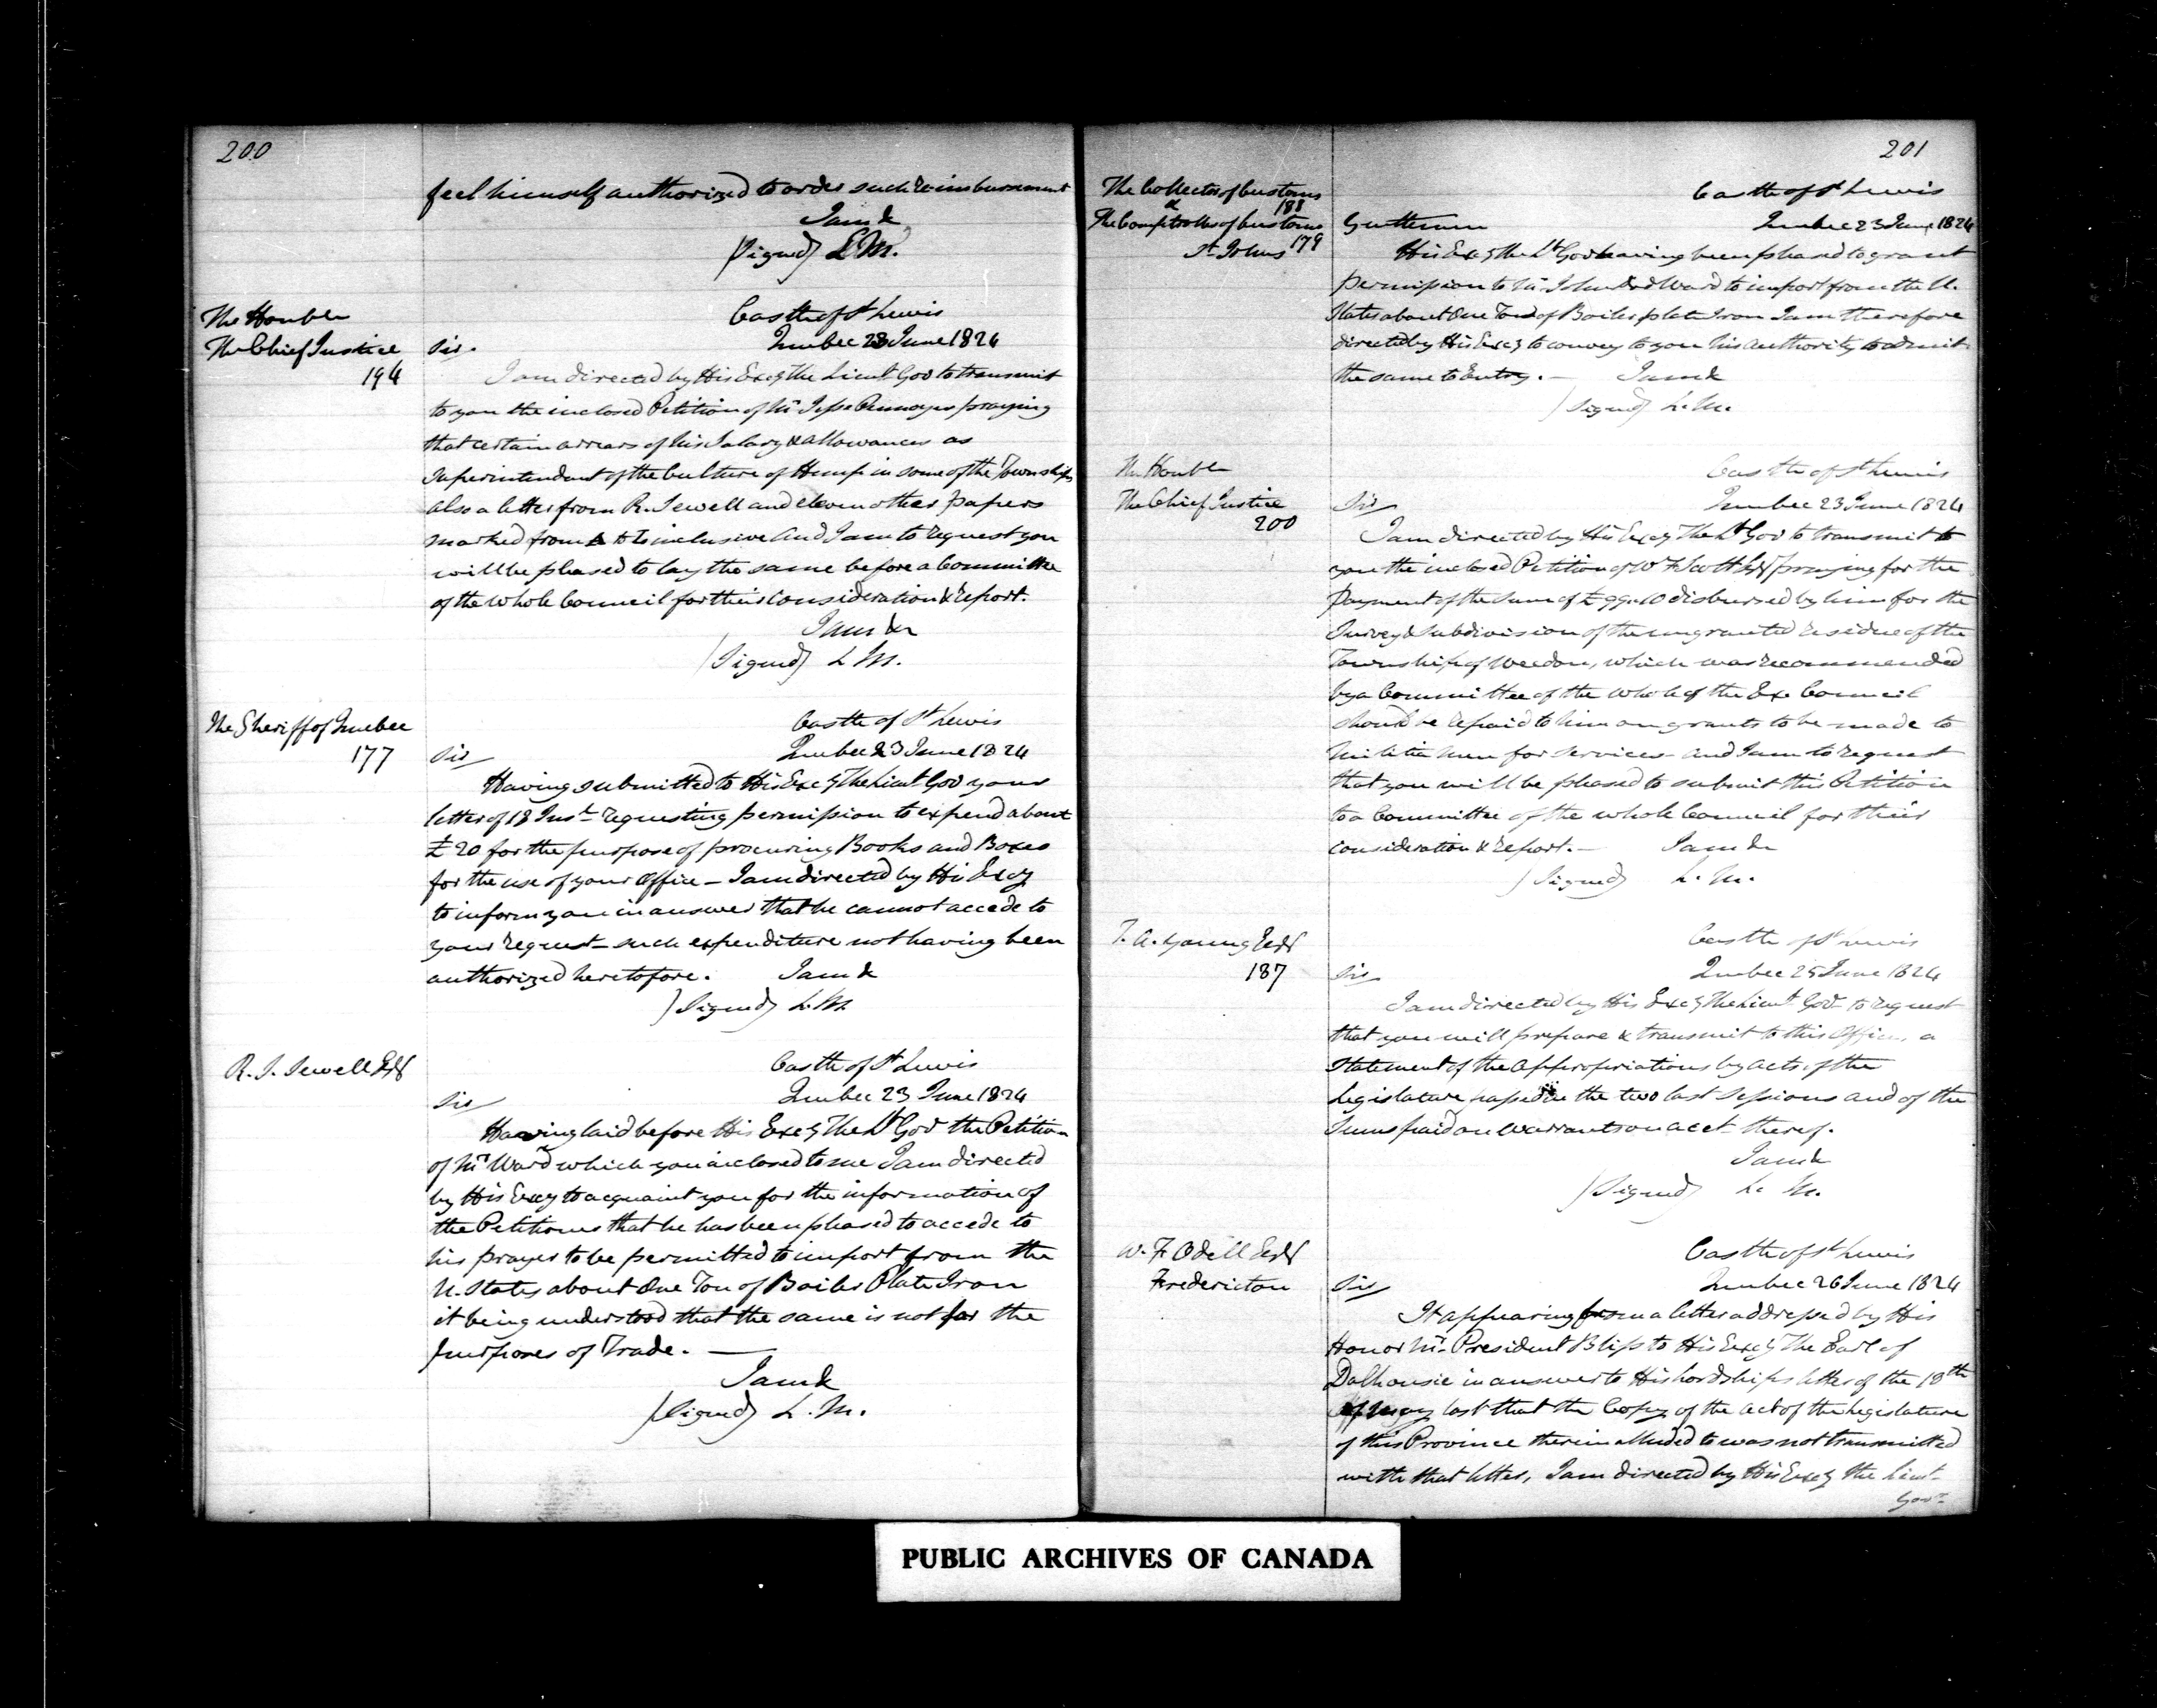 200
feel himself authorized to order such reimbursement
I am &
(Signed) L M.
The Honble
The Chief Justice
194
Castle of St Lewis
Quebec 23 June 1824
Sir.
I am directed by His Excy The Lieut Gov to transmit
to you the inclosed Petition of Mr Jesse Pennoyer praying
that certain arrears of his Salary & allowances as
Superintendant of the Culture of Hemp in some of the Townships
also a letter from R. Sewell and eleven other papers
marked from A to L inclusive And I am to request you
will be pleased to lay the same before a Committee
of the whole Council for their consideration & report.
I am &c
(Signed) L M.
The Sheriff of Quebec
177
Castle of St Lewis
Quebec 23 June 1824
Sir
Having submitted to His Excy The Lieut Gov your
letter of 18 Inst requesting permission to expend about
£ 20 for the purpose of procuring Books and Boxes
for the use of your Office – I am directed by His Excy
to inform you in answer that he cannot accede to
your request – such expenditure not having been
authorized heretofore. I am &
(Signed) L. M.
R. S. Sewell Esqr
Castle of St Lewis
Quebec 23 June 1824
Sir
Having laid before His Excy The Lt Gov the Petition
of Mr Ward which you inclosed to me I am directed
by His Excy to acquaint you for the information of
the Petitioner that he has been pleased to accede to
his prayer to be permitted to import from the
U. States about One Ton of Boiler Plate Iron
it being understood that the same is not for the
purposes of Trade. —
I am &
(Signed) L. M.
201
The Collector of Customs
& 188
The Comptroller of Customs
St Johns 179
Castle of St Lewis
Quebec 23 June 1824
Gentlemen
His Excy the Lt Gov having been pleased to grant
permission to Mr John Ward to import from the U.
States about One Ton of Boiler plate Iron I am therefore
directed by His Excy to convey to you his authority to admit
the same to Entry. — I am &
(Signed) L. M.
The Honble
The Chief Justice
200
Castle of St Lewis
Quebec 23 June 1824
Sir
I am directed by His Excy The Lt Gov to transmit to
you the inclosed Petition of W F Scott Esqr praying for the
payment of the Sum of £ 99.10 disbursed by him for the
Survey & Subdivision of the ungranted residue of the
Township of Weedon, which was recommended
by a Committee of the whole of the Exe Council
should be repaid to him on grants to be made to
Militia men for services – and I am to request
that you will be pleased to submit this Petition
to a Committee of the whole Council for their
consideration & report. — I am &c
(Signed) L. M.
T. A. Young Esqr
187
Castle of St Lewis
Quebec 25 June 1824
Sir
I am directed by His Excy The Lieut Gov to request
that you will prepare & transmit to this Office, a
Statement of the appropriations by acts of the
legislature passed in the two last Sessions and of the
Sums paid on Warrants on acct thereof.
I am &
(Signed) L. M.
W. F. Odell Esqr
Fredericton
Castle of St Lewis
Quebec 26 June 1824
Sir
It appearing from a letter addressed by His
Honor Mr President Bliss to His Excy The Earl of
Dalhousie in answer to His Lordships letter of the 18th
last that the Copy of the act of the Legislature
of this Province therein alluded to was not transmitted
with that letter, I am directed by His Excy the Lieut
Govr
PUBLIC ARCHIVES OF CANADA